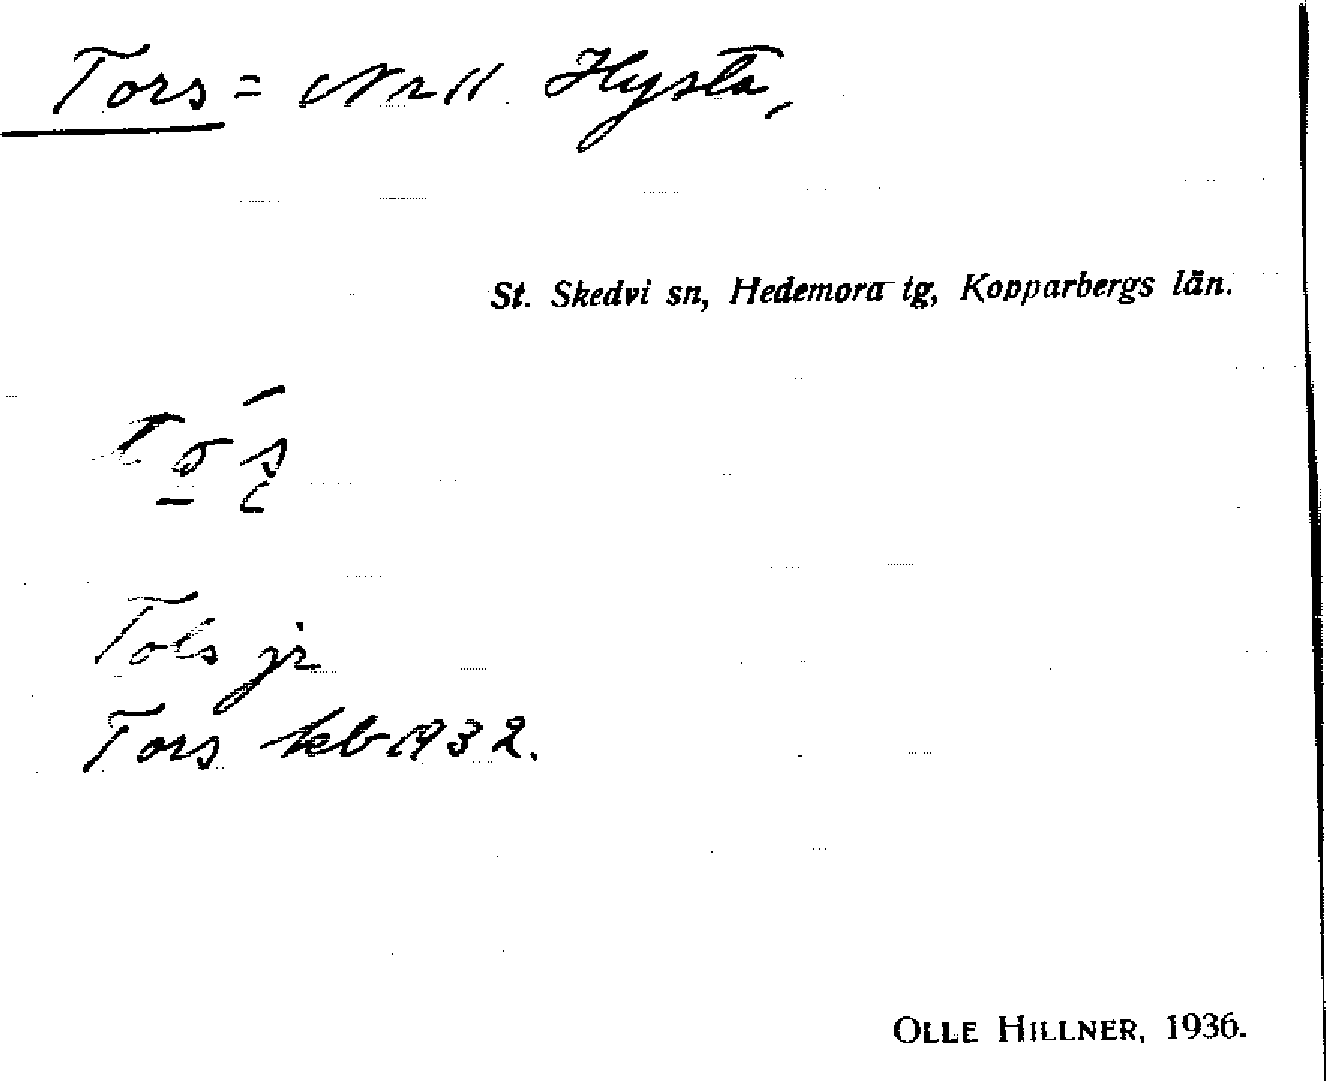 Tors = Nr 11. Hysta,
St. Skedvi sn, Hedemora tg, Kopparbergs län.
Tols jr
Tors kb 1932.
OLLE HILLNER, 1936.